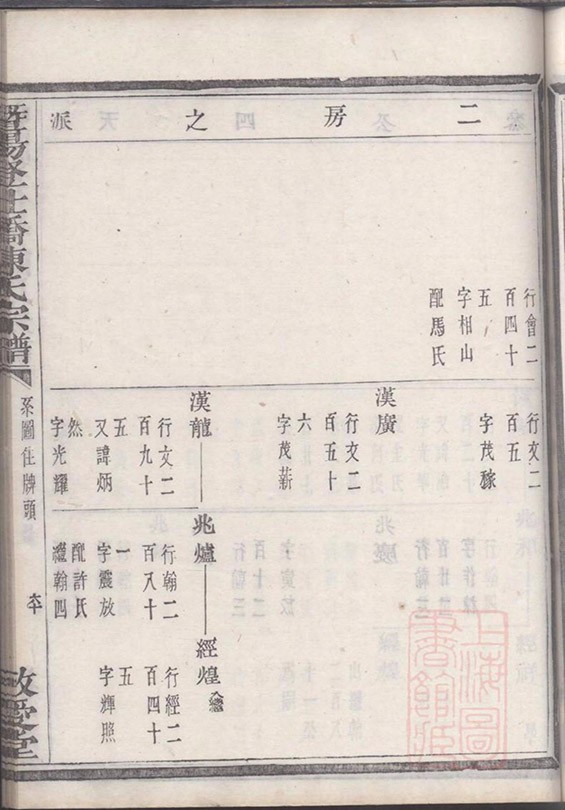 二房之派
行會二
百四十
五
字相山
配馬氏
行文二
百五
字茂稼
漢廣
行文二
百五十
六
字茂薪
漢龍
行文二
百九十
五
又諱炳
然
字光耀
兆爐
行翰二
百八十
一
字震放
配許氏
繼翰四
經煌
行經二
百四十
五
字輝照
橋陳氏宗譜
系圖住牌頭
敬愛堂
上海圖書館藏